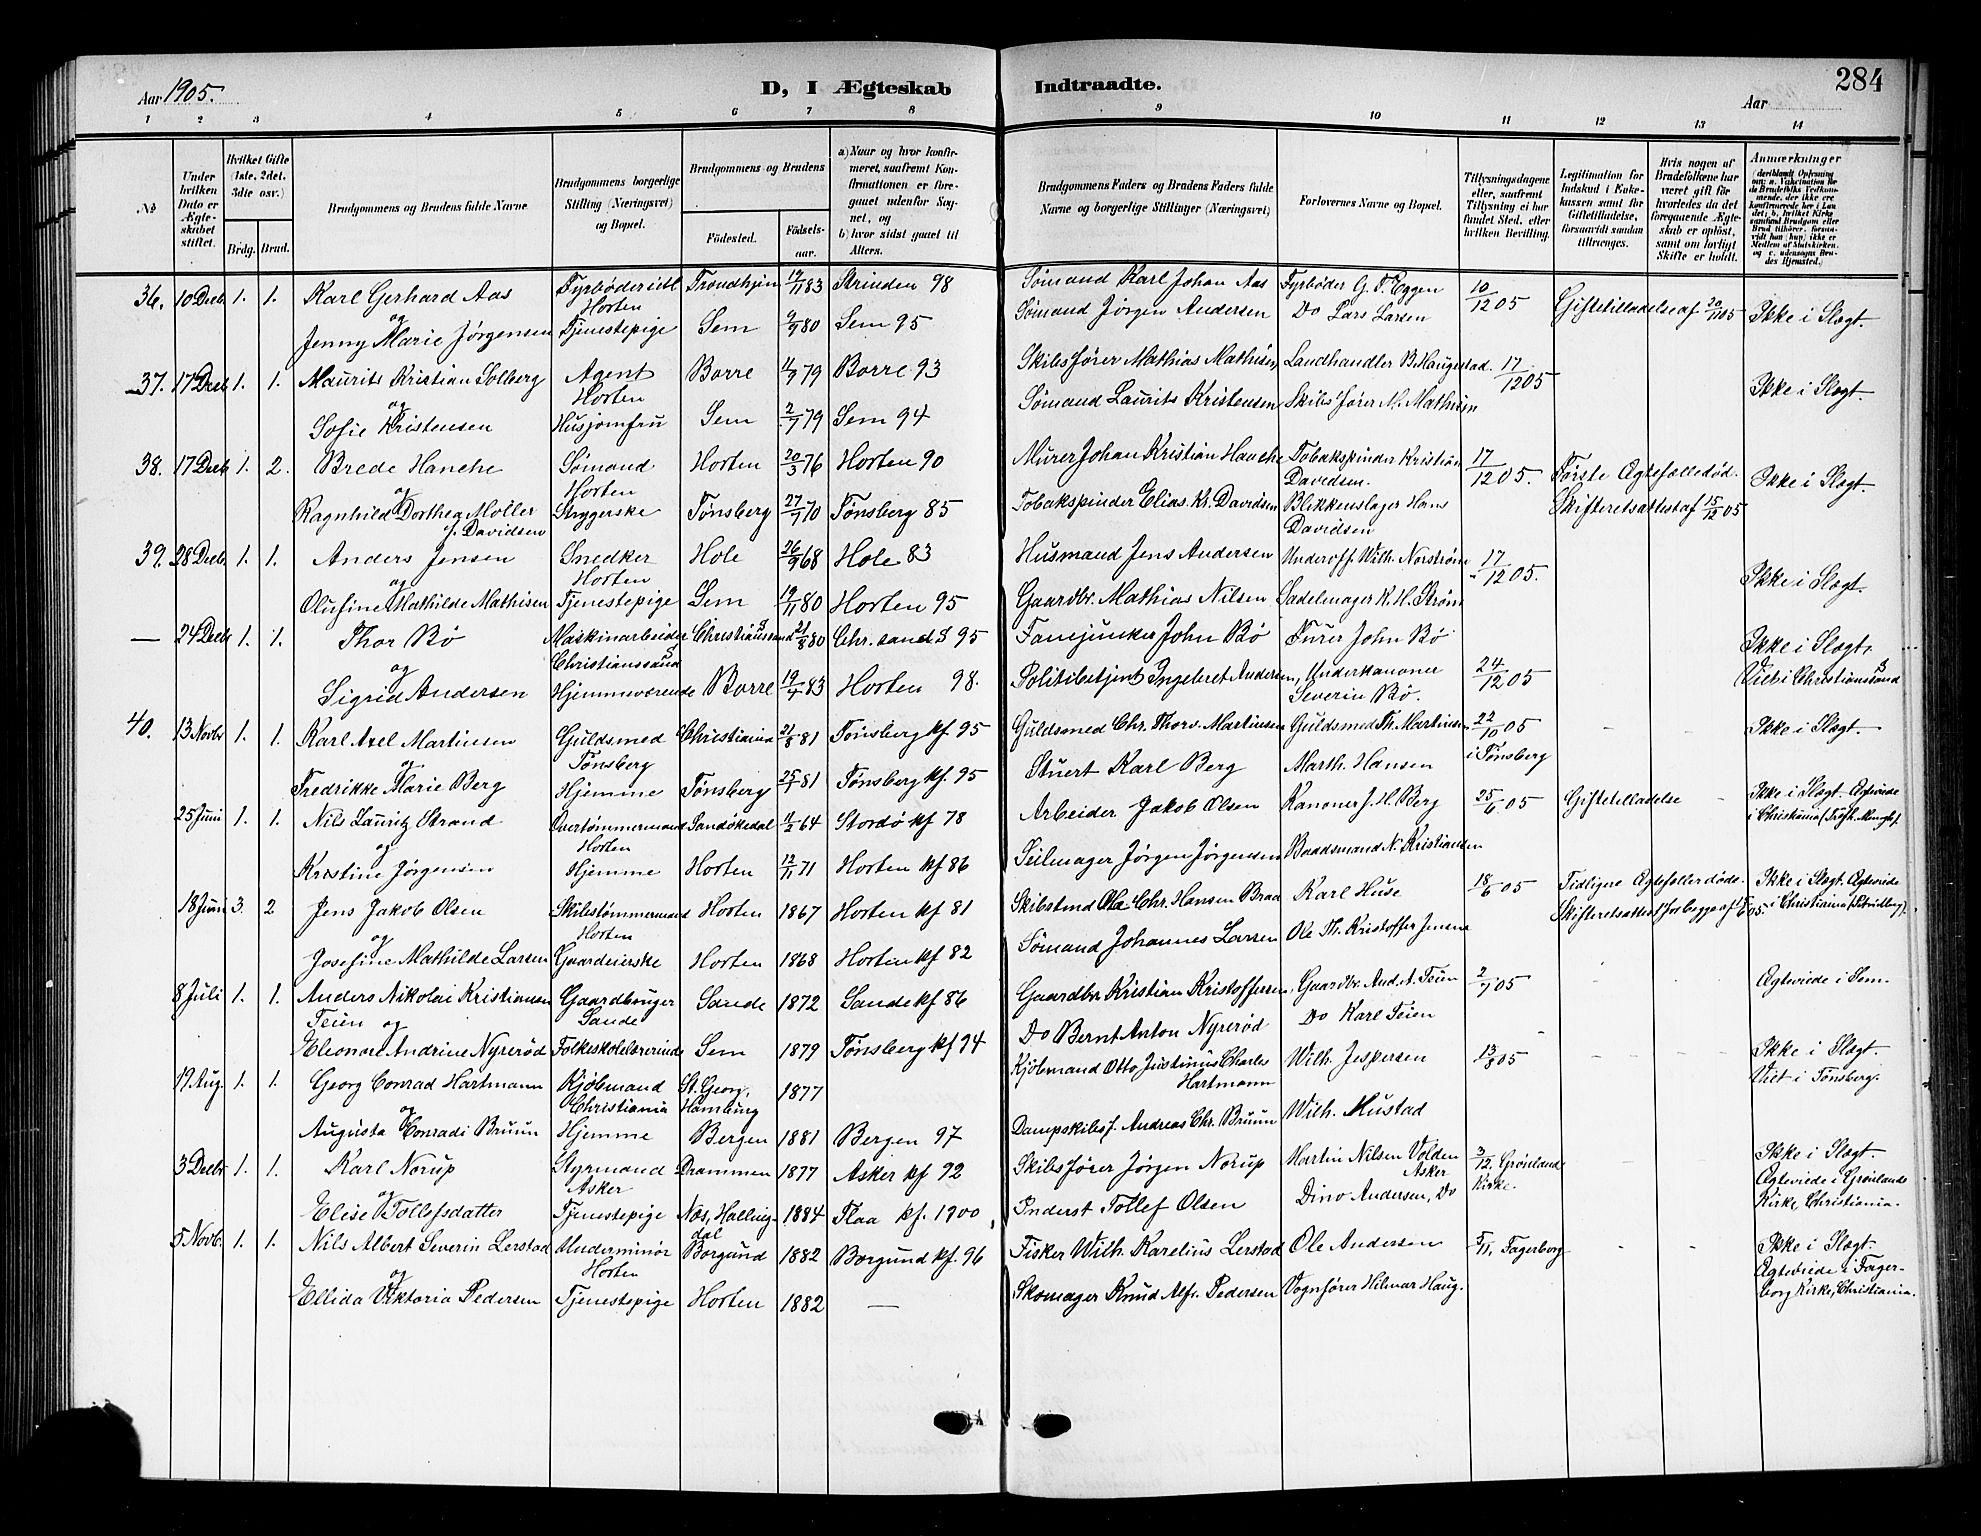 284
Aar 1905.
D, I Ægteskab Indtraadte.
Aar
1 2 3 4 5 6 7 8 9 10 11 12 13 14
No
Under hvilken Dato er Ægteskabet stiftet.
Hvilket Gifte (1ste, 2det, 3die osv.)
Brdg. Brud.
Brudgommens og Brudens fulde Navne
Brudgommens borgerlige Stilling (Næringsvei) og Bopæl.
Brudgommens og Brudens
Fødested. Fødselsaar.
a) Naar og hvor konfirmeret, saafremt Konfirmationen er foregaaet udenfor Sognet, og
b) hvor sidst gaaet til Alters.
Brudgommens Faders og Brudens Faders fulde Navne og borgerlige Stillinger (Næringsvei)
Forlovernes Navne og Bopæl.
Tillysningsdagene eller, saafremt Tillysning ei har fundet Sted, efter hvilken Bevilling.
Legitimation for Indskud i Enkekassen samt for Giftetilladelse, forsaavidt saadan tiltrænges.
Hvis nogen af Brudefolkene har været gift før hvorledes da det foregaaende Ægteskab er opløst, samt om lovligt Skifte er holdt.
Anmærkninger
36. 10 Decb. 1. 1. Karl Gerhard Aas Fyrbøder Trondhjem 19/11 83 Strinden 98 Sømand Karl Johan Aas Fyrbøder G. T. Eggen 10/12 05 Giftetilladelse af 20/11 05 Ikke i Slægt.
og Horten
Jenny Marie Jørgensen Tjenestepige Sem 9/9 80 Sem 95 Sømand Jørgen Andersen Do Lars Larsen
37. 17 Decb 1. 1. Maurits Kristian Solberg Agent Borre 11/9 79 Borre 93 Skibsfører Mathias Mathisen, Landhandler B. Haugestad. 17/12 05 Ikke i Slægt.
og Horten
Sofie Kristensen Husjomfru Sem 2/7 79 Sem 94 Sømand Laurits Kristensen Skibsfører M. Mathisen
38. 17 Decb 1. 2. Brede Hanche Sømand Horten 20/3 76 Horten 90 Murer Johan Kristian Hanche Tobakspinder Kristian Davidsen. 17/12 05. Første Ægtefælle død. Ikke i Slægt.
og Horten
Ragnhild Dorthea Møller f. Davidsen Strygerske Tønsberg 27/7 70 Tønsberg 85 Tobakspinder Elias Kr. Davidsen Blikkenslager Hans Davidsen Skifteretsattest af 15/12 05
39. 28 Decb. 1. 1. Anders Jensen Snedker Hole 26/9 68 Hole 83 Husmand Jens Andersen Underoff. Wilh. Norstrøm 17/12 05. Ikke i Slægt.
og Horten
Olufine Mathilde Mathisen Tjenestepige Sem 19/11 80 Horten 95 Gaardbr. Mathias Nilsen Sadelmager K. H. Strøm
— 24 Decb 1. 1. Thor Bø Maskinarbeider Christianssand S 21/8 80 Chr. sand S 95 Fanejunker John Bø Furer John Bø Ikke i Slægt.
og Christianssand S
Sigrid Andersen Hjemmeværende Borre 19/4 83 Horten 98. Politibetjent Ingebret Andersen, Underkanoner Severin Bø. 24/12 05 Viet i Christianssand S
40. 13 Novbr 1. 1. Karl Axel Martinsen Guldsmed Christiania 21/8 81 Tønsberg kf 95 Guldsmed Chr. Thorv. Martinsen Guldsmed Th. Martinsen 22/10 05 i Tønsberg Ikke i Slægt.
og Tønsberg
Fredrikke Marie Berg Hjemme Tønsberg 25/1 81 Tønsberg kf. 95 Stuert Karl Berg Marth. Hansen
25 Juni 1. 1. Nils Lauritz Strand Overtømmermand Sandøkedal 11/2 64 Stordø kf 78 Arbeider Jakob Olsen Kanoner J. H. Berg 25/6 05 Giftetilladelse - Ikke i Slægt. Ægteviede i Christiania
og Horten
Kristine Jørgensen Hjemme Horten 12/11 71 Horten kf 86 Seilmager Jørgen Jørgensen Baadsmand N. Kristiansen
18 Juni 3. 2 Jens Jakob Olsen Skibstømmermand Horten 1867 Horten kf 81 Skibstmd Ole Chr. Hansen Braa Karl Huse 18/6 05 Tidligere Ægtefæller døde. Ikke i Slægt. Ægteviede
og Horten Skifteretsattest for begge af i Christiania
Josefine Mathilde Larsen Gaardeierske Horten 1868 Horten kf 82 Sømand Johannes Larsen Ole Th. Kristoffer Jensen
8 Juli 1. 1. Anders Nikolai Kristiansen Gaardbruger Sande 1872 Sande kf 86 Gaardbr. Kristian Kristoffersen, Gaardbr. And. A. Teien 2/7 05 - - Ægteviede i Sem.
Teien og Sande
Eleonore Andrine Nyrerød Folkeskolelærerinde Sem 1879 Tønsberg kf 94 Do Bernt Anton Nyrerød Do Karl Teien
19 Aug. 1. 1. Georg Conrad Hartmann Kjøbmand St. Georg, Hamburg 1877 Kjøbmand Otto Justinus Charles Hartmann Wilh. Jespersen 13/8 05 - - Ikke i Slægt. Viet i Tønsberg.
og Christiania
Augusta Conradi Bruun Hjemme Bergen 1881 Bergen 97 Dampskibsf. Andreas Chr. Bruun Wilh. Mustad
3 Decbr 1. 1. Karl Norup Styrmand Drammen 1877 Asker kf 92 Skibsfører Jørgen Norup Martin Nilsen Volden Asker 3/12. Grønland Kirke. - - Ikke i Slægt.
og Asker Ægteviede i Grønlands
Elise Tollefsdatter Tjenestepige Næs, Hallingdal 1884 Flaa kf. 1900, Inderst Tollef Olsen Dino Andersen, Do Kirke, Christiania.
5 Novb. 1. 1. Nils Albert Severin Lerstad Underminør Borgund 1882 Borgund kf. 96 Fisker Wilh. Karelius Lerstad Ole Andersen 5/11. Fagerborg - - Ikke i Slægt.
og Horten Ægteviede i Fagerborg Kirke, Christiania.
Ellida Viktoria Pedersen Tjenestepige Horten 1882 — Skomager Knud Alfr. Pedersen Vognfører Hilmar Haug.